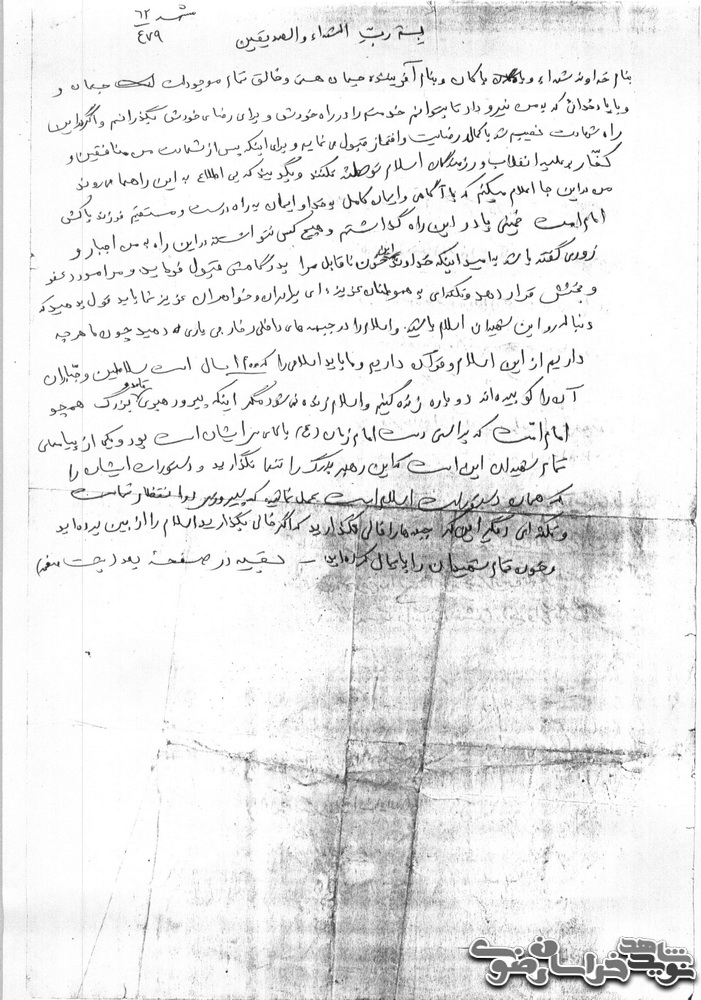 ۶۲
۴۷۹
بسم رب الشهداء والصدیقین
بنام خداوند شهداء و پاکان و بنام آفریننده جهان هستی و خالق تمام موجودات جهان و
و با یاد خدائی که به من نیرو داد تا بتوانم خودم را در راه خودش و برای رضای خودش بگذرانم و اگر در این
راه شهادت نصیبم شد با کمال رضایت و افتخار قبول می نمایم و برای اینکه پس از شهادت من منافقین و
کفار بر علیه انقلاب و رزمندگان اسلام توطئه نکنند و بگویند که بی اطلاع به این راهها می روند
من در این جا اعلام میکنم که با آگاهی و ایمان کامل به خدا و ایمان به راه درست و مستقیم فرزند پاکش
امام امت خمینی پا در این راه گذاشتم و هیچ کس نتوانسته در این راه به من اجبار و
زوری گفته باشد به امید اینکه خداوند این خون ناقابل مرا بدرگاهش قبول فرماید و مرا مورد عفو
و بخشش قرار دهد و نکته‌ای به هموطنان عزیز ای برادران و خواهران عزیز شما باید قول بدهید که
دنباله رو این شهیدان اسلام باشید و اسلام را در جبهه های داخلی و خارجی یاری دهید چون ما هر چه
داریم از این اسلام و قرآن داریم و ما باید اسلامی را که ۲۵۰۰ سال است سلاطین و جباران
آن را کوبیده‌اند دوباره زنده کنیم و اسلام زنده نمی شود مگر اینکه پیرو رهبری بزرگ همچو
امام امت که براستی دست امام زمان (عج) بالای سر ایشان است بود و یکی از پیامهای
تمام شهیدان این است که این رهبر بزرگ را تنها نگذارید و دستورات ایشان را
که همان دستورات اسلام است عمل نمائید که پیروزی در انتظار شماست
و نکته‌ای دیگر این که جبهه ها را خالی نگذارید که اگر خالی بگذارید اسلام را از بین برده‌اید
و خون تمام شهیدان را پایمال کرده‌اید - بقیه در صفحهٔ بعد (پشت صفحه)
شاهد
نوید
خراسان رضوی